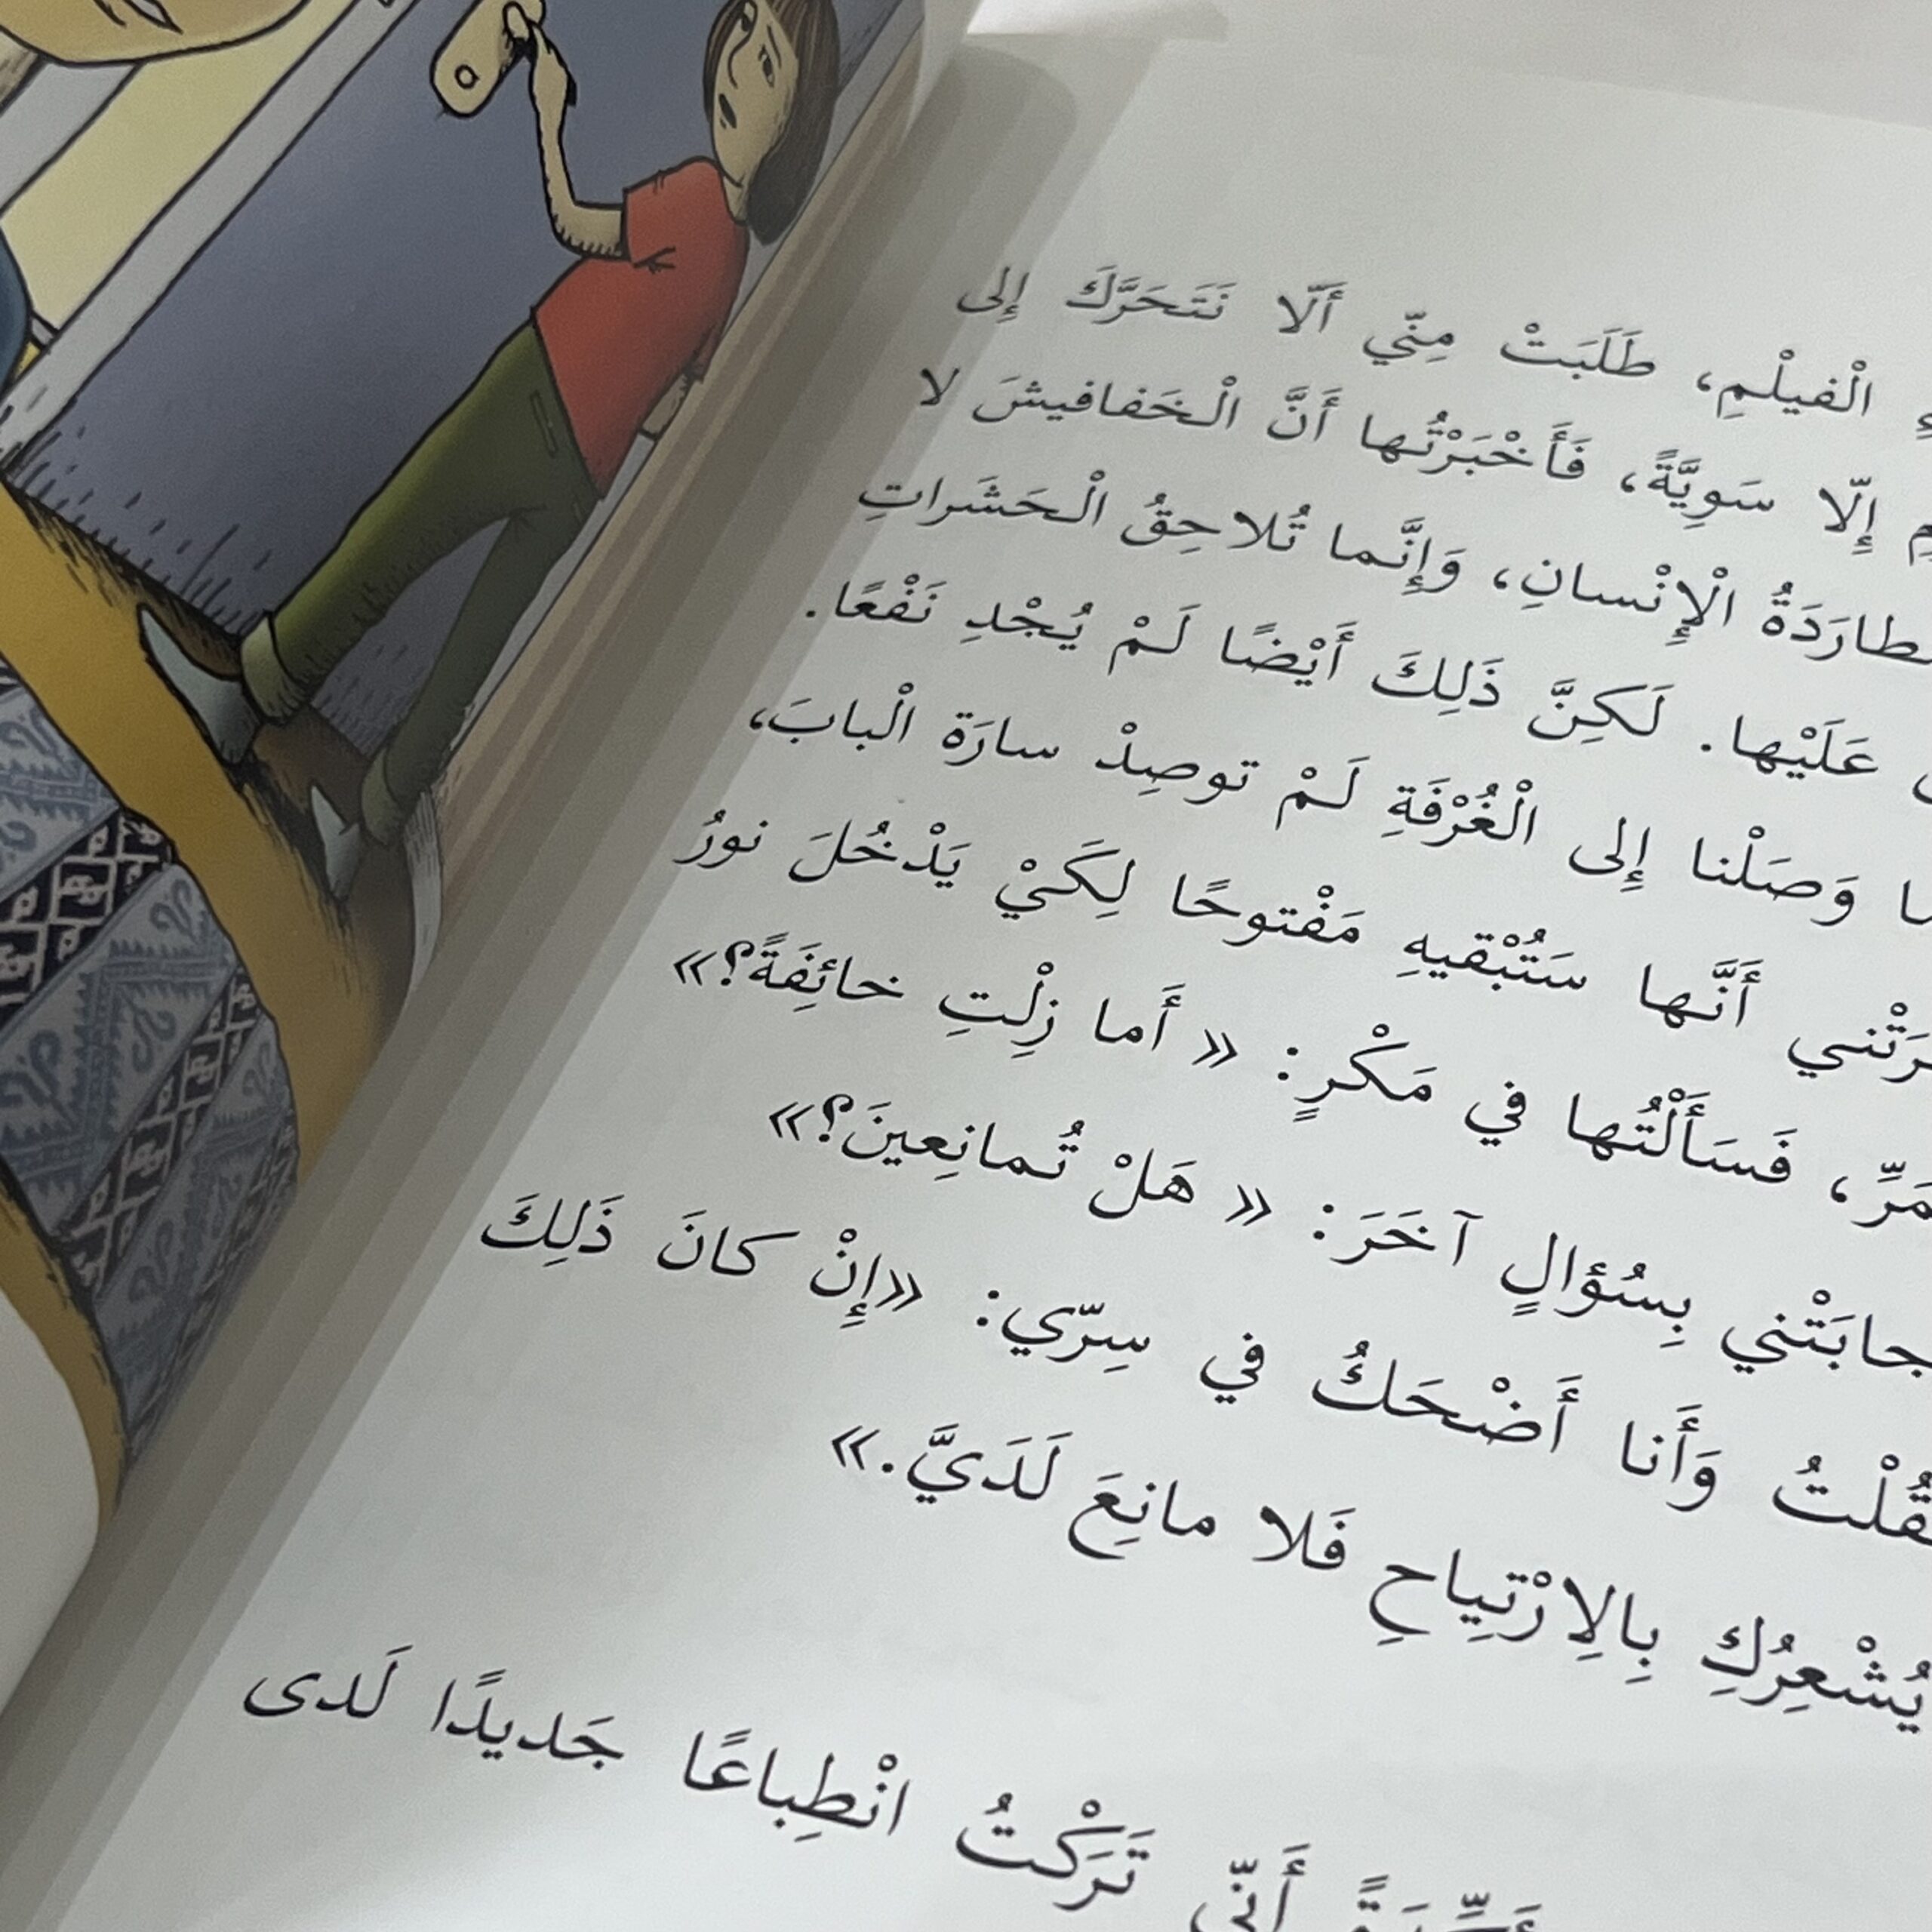 الْفيلْمِ، طَلَبَتْ مِنّي أَلّا نَتَحَرَّكَ إِلى
إِلّا سَوِيَّةً، فَأَخْبَرْتُها أَنَّ الْخَفافيشَ لا
الْإِنْسانِ، وَإِنَّما تُلاحِقُ الْحَشَراتِ
عَلَيْها. لَكِنَّ ذَلِكَ أَيْضًا لَمْ يُجْدِ نَفْعًا.
وَصَلْنا إِلى الْغُرْفَةِ لَمْ توصِدْ سارَة الْبابَ،
أَنَّها سَتُبْقيهِ مَفْتوحًا لِكَيْ يَدْخُلَ نورُ
فَسَأَلْتُها في مَكْرٍ: «أَما زِلْتِ خائِفَةً؟»
بِسُؤالٍ آخَرَ: «هَلْ تُمانِعينَ؟»
وَأَنا أَضْحَكُ في سِرّي: «إِنْ كانَ ذَلِكَ
يُشْعِرُكِ بِالِارْتِياحِ فَلا مانِعَ لَدَيَّ.»
أَنّي تَرَكْتُ انْطِباعًا جَديدًا لَدى